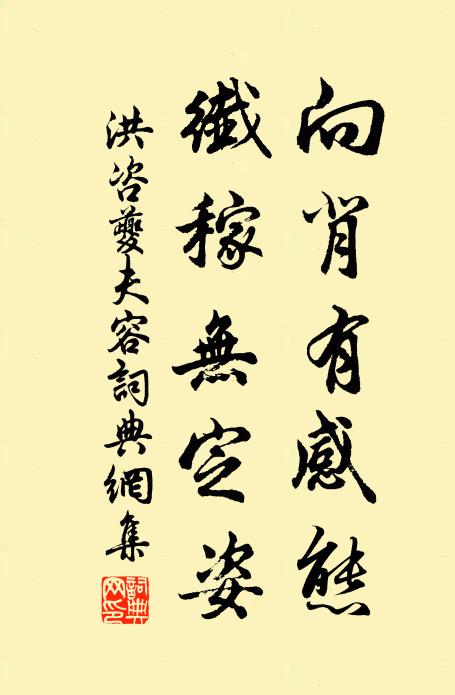 向背有感態
纖稼無定姿
洪咨夔夫容詞典網集
詞典网印